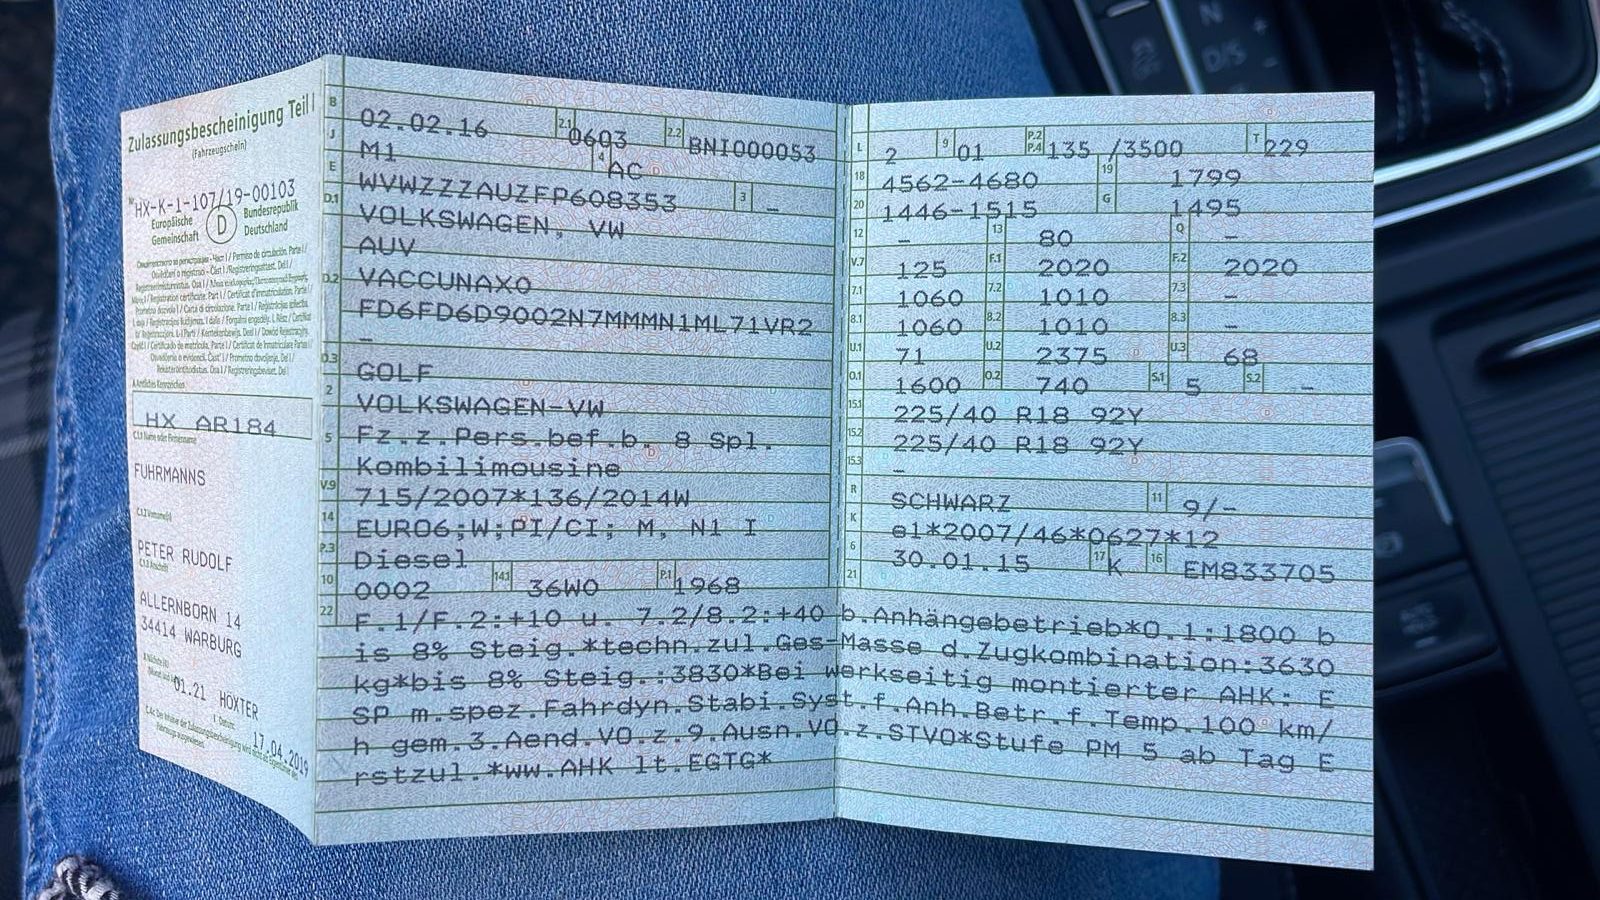 Zulassungsbescheinigung Teil I
(Fahrzeugschein)
Nr. HX-K-1-107/19-00103
Europäische Gemeinschaft D Bundesrepublik Deutschland
A Amtliches Kennzeichen
HX AR184
C.1.1 Name oder Firmenname
FUHRMANNS
C.1.2 Vorname(n)
PETER RUDOLF
C.1.3 Anschrift
ALLERNBORN 14
34414 WARBURG
01.21 HÖXTER
I Datum:
17.04.2019
B 02.02.16 2.1 0603 2.2 BNI000053
J M1 4 AC
E WVWZZZAUZFP608353 3 -
D.1 VOLKSWAGEN, VW
AUV
D.2 VACCUNAX0
FD6FD6D9002N7MMMN1ML71VR2
-
D.3 GOLF
2 VOLKSWAGEN-VW
5 Fz.z.Pers.bef.b. 8 Spl.
Kombilimousine
V.9 715/2007*136/2014W
14 EURO6;W;PI/CI; M, N1 I
P.3 Diesel
10 0002 14.1 36W0 P.1 1968
L 2 9 01 P.2 P.4 135 /3500 T 229
18 4562-4680 19 1799
20 1446-1515 G 1495
12 - 13 80 Q -
V.7 125 F.1 2020 F.2 2020
7.1 1060 7.2 1010 7.3 -
8.1 1060 8.2 1010 8.3 -
U.1 71 U.2 2375 U.3 68
O.1 1600 O.2 740 S.1 5 S.2 -
15.1 225/40 R18 92Y
15.2 225/40 R18 92Y
15.3 -
R SCHWARZ 11 9/-
K e1*2007/46*0627*12
6 30.01.15 17 K 16 EM833705
21
22 F.1/F.2:+10 u. 7.2/8.2:+40 b.Anhängebetrieb*O.1:1800 b
is 8% Steig.*techn.zul.Ges-Masse d.Zugkombination:3630
kg*bis 8% Steig.:3830*Bei werkseitig montierter AHK: E
SP m.spez.Fahrdyn.Stabi.Syst.f.Anh.Betr.f.Temp.100 km/
h gem.3.Aend.VO.z.9.Ausn.VO.z.STVO*Stufe PM 5 ab Tag E
rstzul.*ww.AHK lt.EGTG*
N
D/S
+
-